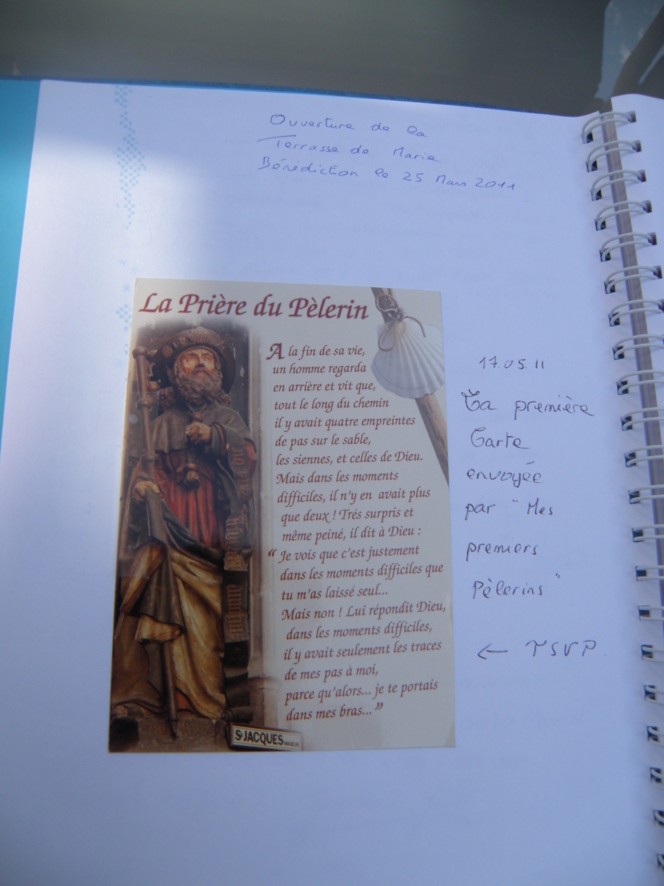 Ouverture de la
Terrasse de Marie
Bénédiction le 25 Mars 2011
La Prière du Pèlerin
A la fin de sa vie,
un homme regarda
en arrière et vit que,
tout le long du chemin
il y avait quatre empreintes
de pas sur le sable,
les siennes, et celles de Dieu.
Mais dans les moments
difficiles, il n'y en avait plus
que deux ! Trés surpris et
même peiné, il dit à Dieu :
“ Je vois que c'est justement
dans les moments difficiles que
tu m'as laissé seul...
Mais non ! Lui répondit Dieu,
dans les moments difficiles,
il y avait seulement les traces
de mes pas à moi,
parce qu'alors... je te portais
dans mes bras... ”
St JACQUES
17.05.11
La première
Carte
envoyée
par " Mes
premiers
Pèlerins "
← TSVP.